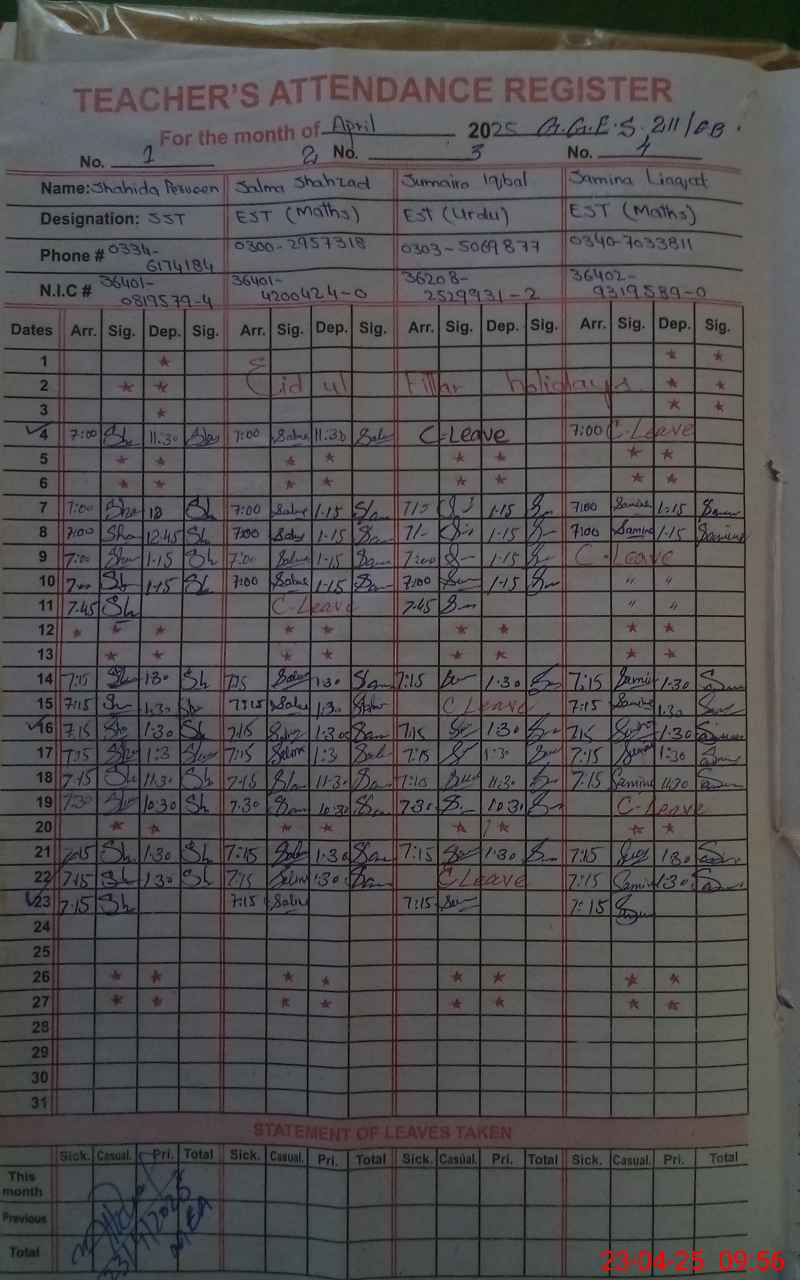 TEACHER'S ATTENDANCE REGISTER
For the month of April 2025 G.G.E.S. 211/EB.
No. 1 2 No. 3 No. 4
Name: Shahida Perveen Salma Shahzad Sumaira Iqbal Samina Liaqat
Designation: SST EST (Maths) EST (Urdu) EST (Maths)
Phone # 0334-6174184 0300-2957318 0303-5069877 0340-7033811
N.I.C # 36401-0819579-4 36401-4200424-0 36208-2529931-2 36402-9319589-0
Dates Arr. Sig. Dep. Sig. Arr. Sig. Dep. Sig. Arr. Sig. Dep. Sig. Arr. Sig. Dep. Sig.
1 * * *
2 * * Eid ul Fitter holidays * *
3 * * *
4 7:00 Sh 11.30 7:00 Salma 11:30 C-Leave 7:00 C-Leave
5 * * * * * * * *
6 * * * * * * * *
7 7:00 Sha 12 Sh 7:00 Salma 1-15 7/- 1-15 7:00 Samina 1:15
8 7:00 Sha 12.45 Sh 7:00 1-15 7/- 1-15 7:00 Samina 1-15 Samina
9 7:00 Sha 1-15 Sh 7:00 Salma 1-15 7:00 1-15 C-Leave
10 7:00 Sh 1-15 Sh 7:00 Salma 1-15 7:00 1-15 " "
11 7.45 Sh C-Leave 7.45 " "
12 * * * * * * * * *
13 * * * * * * * *
14 7:15 1:30 Sh 7:15 Salma 1:30 7:15 1:30 7:15 Samina 1:30
15 7:15 1:30 7:15 Salma 1:30 C Leave 7:15 Samina 1:30
16 7:15 Sh 1:30 Sh 7:15 1:30 7:15 1:30 7:15 1:30
17 7:15 Sha 1:3 7:15 Salma 1:3 7:15 1:30 7:15 1:30
18 7:15 Sh 11:30 Sh 7:15 11:30 7:15 11:30 7:15 Samina 11:30
19 7:30 10:30 Sh 7.30 10:30 7:30 10:30 C-Leave
20 * * * * * * * *
21 7:15 Sh 1:30 Sh 7:15 Salma 1:30 7:15 1:30 7:15 1:30
22 7:15 Sh 1:30 Sh 7:15 Salma 1:30 C-Leave 7:15 Samina 1:30
23 7:15 Sh 7:15 Salma 7:15 7:15
24
25
26 * * * * * * * *
27 * * * * * * * *
28
29
30
31
STATEMENT OF LEAVES TAKEN
Sick. Casual. Pri. Total Sick. Casual. Pri. Total Sick. Casual. Pri. Total Sick. Casual. Pri. Total
This month
Previous
Total
23/4/2025
MEA
23-04-25 09:56